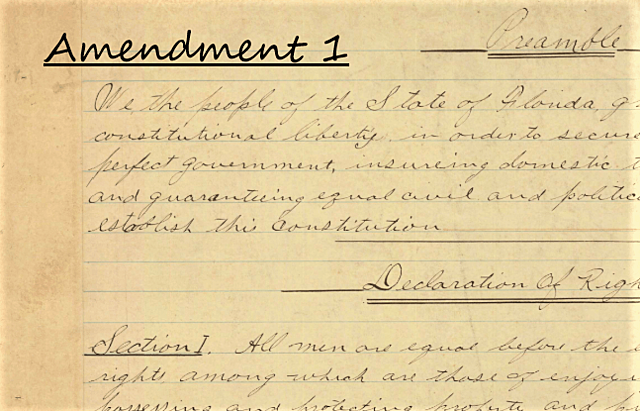 Amendment 1
Preamble
We the people of the State of Florida, g
constitutional liberty, in order to secure
perfect government, insureing domestic t
and guaranteeing equal civil and politic
establish this constitution
Declaration Of Righ
Section I. All men are equal before the
rights among which are those of enjoyi
possessing and protecting property and